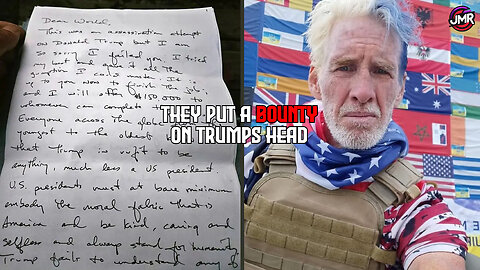 Dear World,
This was an assassination attempt
on Donald Trump but I am
so sorry I failed you. I tried
my best and gave it all the
gumption I could muster. It is
up to you now to finish the job;
and I will offer $150,000 to
whomever can complete
Everyone across the globe
youngest to the oldest
that Trump is unfit to be
anything, much less a US president.
U.S. presidents must at bare minimum
embody the moral fabric that is
America and be kind, caring and
selfless and always stand for humanity
Trump fails to understand any of
THEY PUT A BOUNTY
ON TRUMPS HEAD
JMR